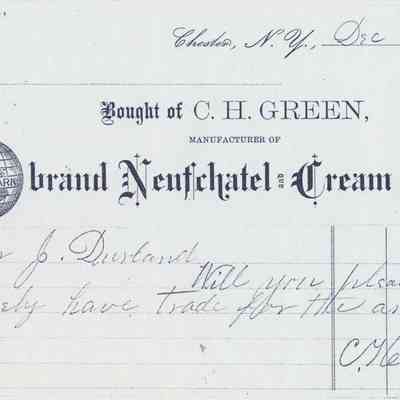 Chester, N. Y., Dec
Bought of C. H. GREEN,
MANUFACTURER OF
brand Neufchatel and Cream
J. Durland
Will you plea
ely have trade for the am
C. H